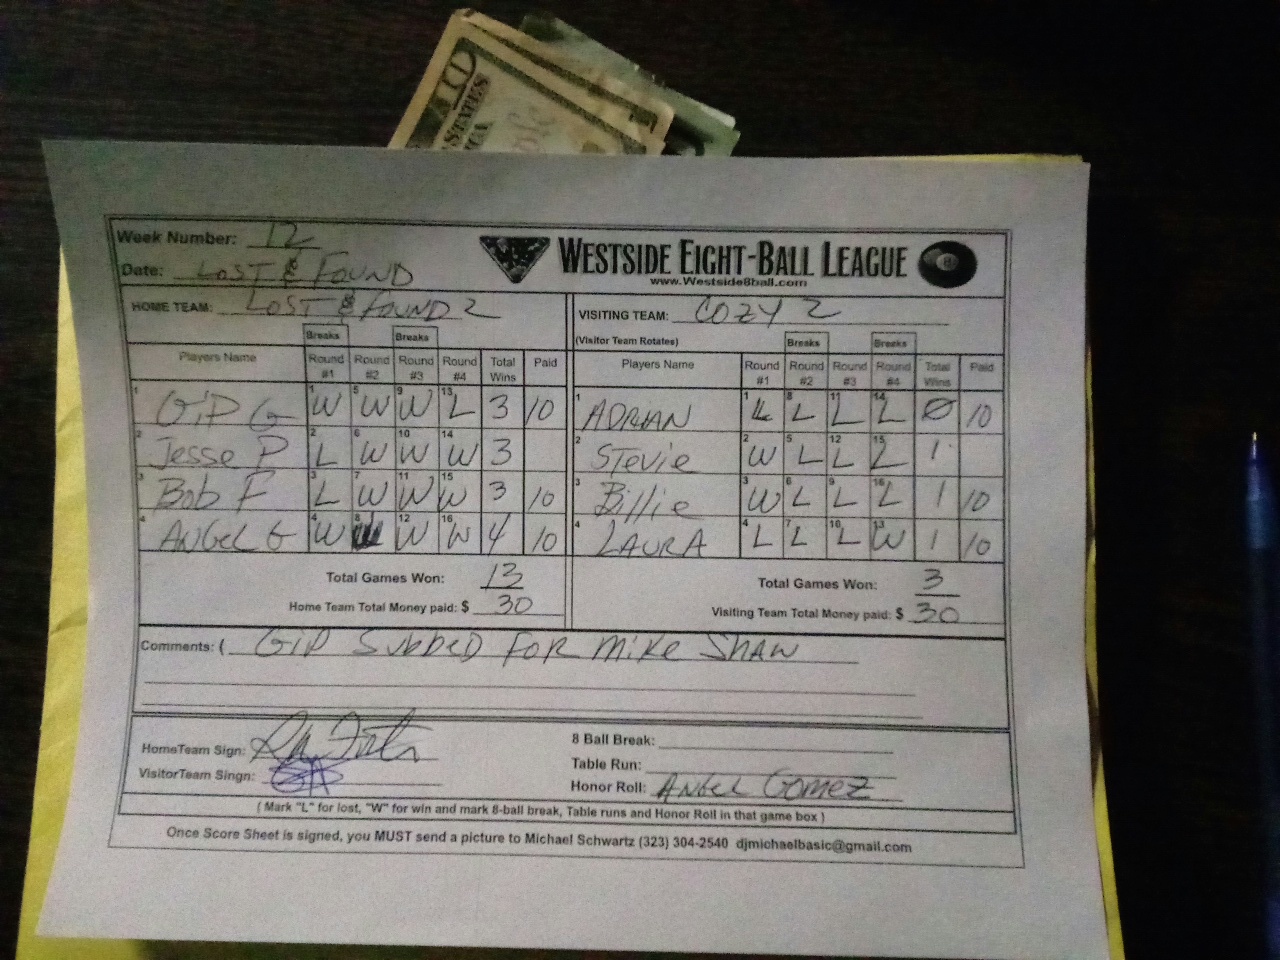 10
STATES
Week Number: 12
WESTSIDE EIGHT-BALL LEAGUE
8
www.Westside8ball.com
Date: LOST & FOUND
HOME TEAM: LOST & FOUND 2
VISITING TEAM: COZY 2
(Visitor Team Rotates)
Breaks Breaks Breaks Breaks
Players Name Round #1 Round #2 Round #3 Round #4 Total Wins Paid Players Name Round #1 Round #2 Round #3 Round #4 Total Wins Paid
1 GiP G 1 W 5 W 9 W 13 L 3 10 1 ADRIAN 1 L 8 L 11 L 14 L 0 10
2 Jesse P 2 L 6 W 10 W 14 W 3 2 STEVIE 2 W 5 L 12 L 15 L 1
3 Bob F 3 L 7 W 11 W 15 W 3 10 3 Billie 3 W 6 L 9 L 16 L 1 10
4 ANGEL G 4 W 8 W 12 W 16 W 4 10 4 LAURA 4 L 7 L 10 L 13 W 1 10
Total Games Won: 13 Total Games Won: 3
Home Team Total Money paid: $ 30 Visiting Team Total Money paid: $ 30
Comments: ( GIP SUBBED FOR MIKE SHAW
HomeTeam Sign: 8 Ball Break:
VisitorTeam Singn: Table Run:
Honor Roll: ANGEL GOMEZ
( Mark "L" for lost, "W" for win and mark 8-ball break, Table runs and Honor Roll in that game box )
Once Score Sheet is signed, you MUST send a picture to Michael Schwartz (323) 304-2540 djmichaelbasic@gmail.com